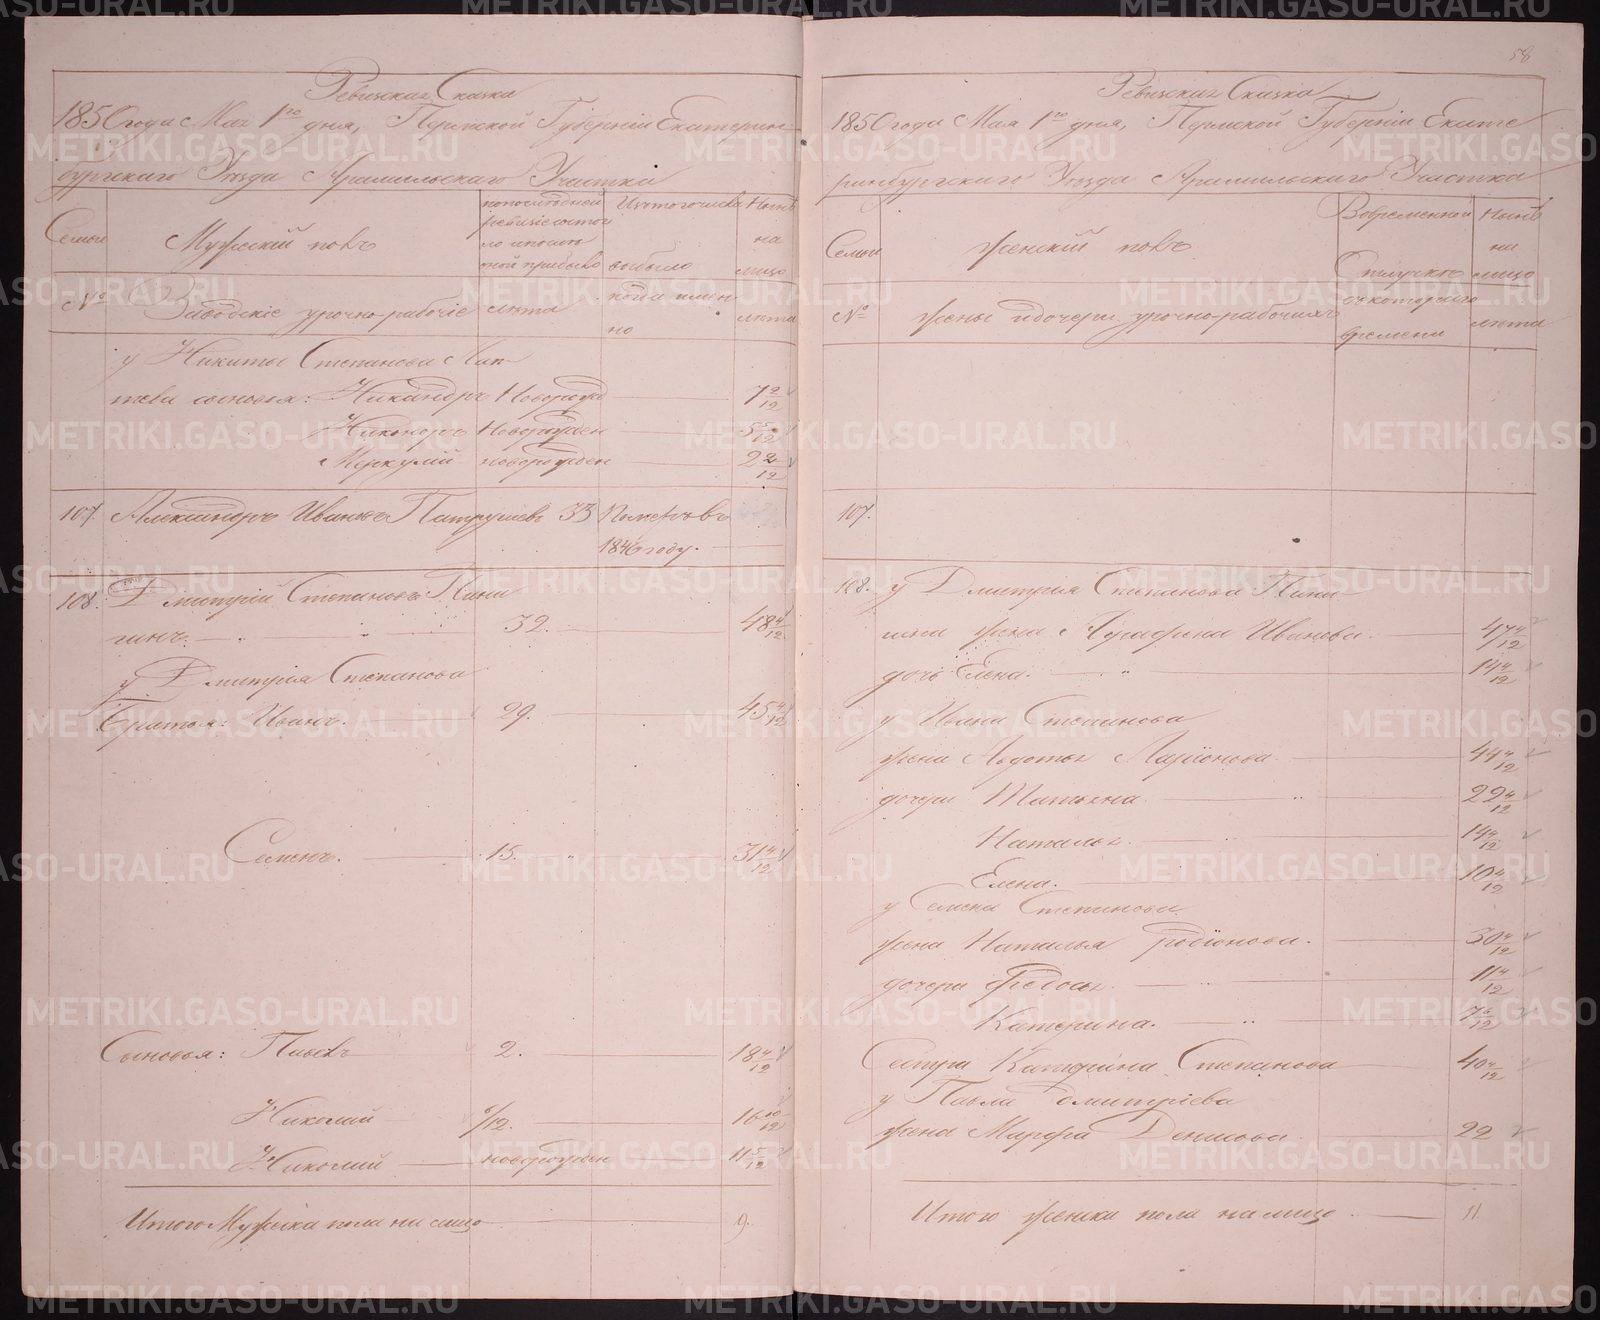 58
Ревизская Сказка
1850 года Мая 1го дня, Пермской Губернiи Екатерин-
бургскаго Уезда Арамильскаго Участка
Семьи
Мужескiй полъ
по последней ревизiи состояло и после оной прибыло
Изъ того числа выбыло
Ныне на лицо
№
Заводскiе урочно-рабочiе
лета
когда именно
лета
у Никиты Степанова Лап-
тева сыновья: Никандръ Новорожд 7 2/12
Никоноръ Новорожден 5 5/12
Меркулiй новорожден 2 2/12
107. Александръ Ивановъ Патрушевъ 33 Померъ въ
1846 году.
108. Дмитрiй Степановъ Пини
гинъ. 32. 48 4/12
у Дмитрiя Степанова
Братья: Иванъ. 29. 45 4/12
Семенъ. 15. 31 4/12
Сыновья: Павелъ 2. 18 4/12
Николай 6/12. 16 10/12
Николай новорожден 11 5/12
Итого Мужеска пола на лицо 9.
Ревизская Сказка
1850 года Мая 1го дня, Пермской Губернiи Екате
ринбургскаго Уезда Арамильскаго Участка
Семьи
Женскiй полъ
Во временной отлучке
Ныне на лицо
№
Жены и дочери урочно-рабочихъ
съ котораго времени
лета
107.
108. у Дмитрiя Степанова Пини
гина жена Аграфена Иванова. 47 4/12
дочь Елена. 14 4/12
у Ивана Степанова
жена Авдотья Ларiонова 44 4/12
дочери Татьяна 22 4/12
Наталья 14 4/12
Елена. 10 4/12
у Семена Степанова
жена Наталья Родiонова. 30 4/12
дочери Федосья. 11 4/12
Катерина. 7 6/12
Сестра Катерина Степанова 40 4/12
у Павла Дмитрiева
жена Марфа Денисова 22
Итого женска пола на лицо 11
METRIKI.GASO-URAL.RU